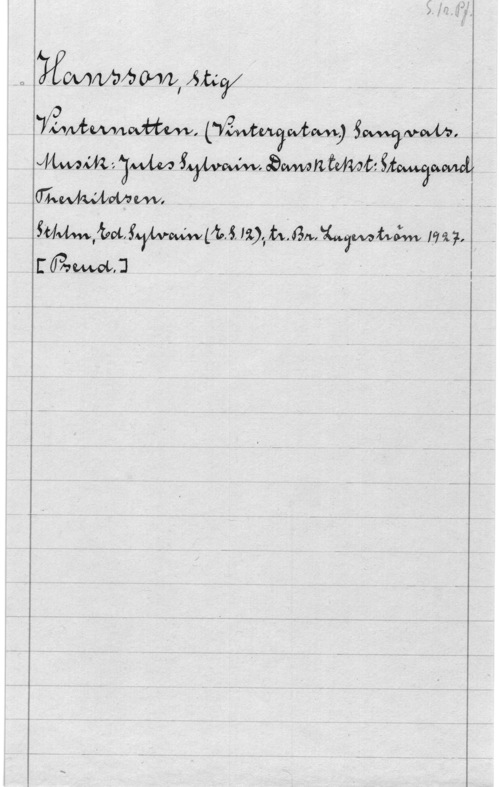 S. /r. Pf.
Hansson, Stig
Vinternatten. (Vintergatan) Sangvals.
Musik: Jules Sylvain. Dansk tekst: Staugaard
Therkildsen.
Sthlm, Ed. Sylvain (E. S. 12), tr. Br. Lagerström 1927.
[Pseud.]